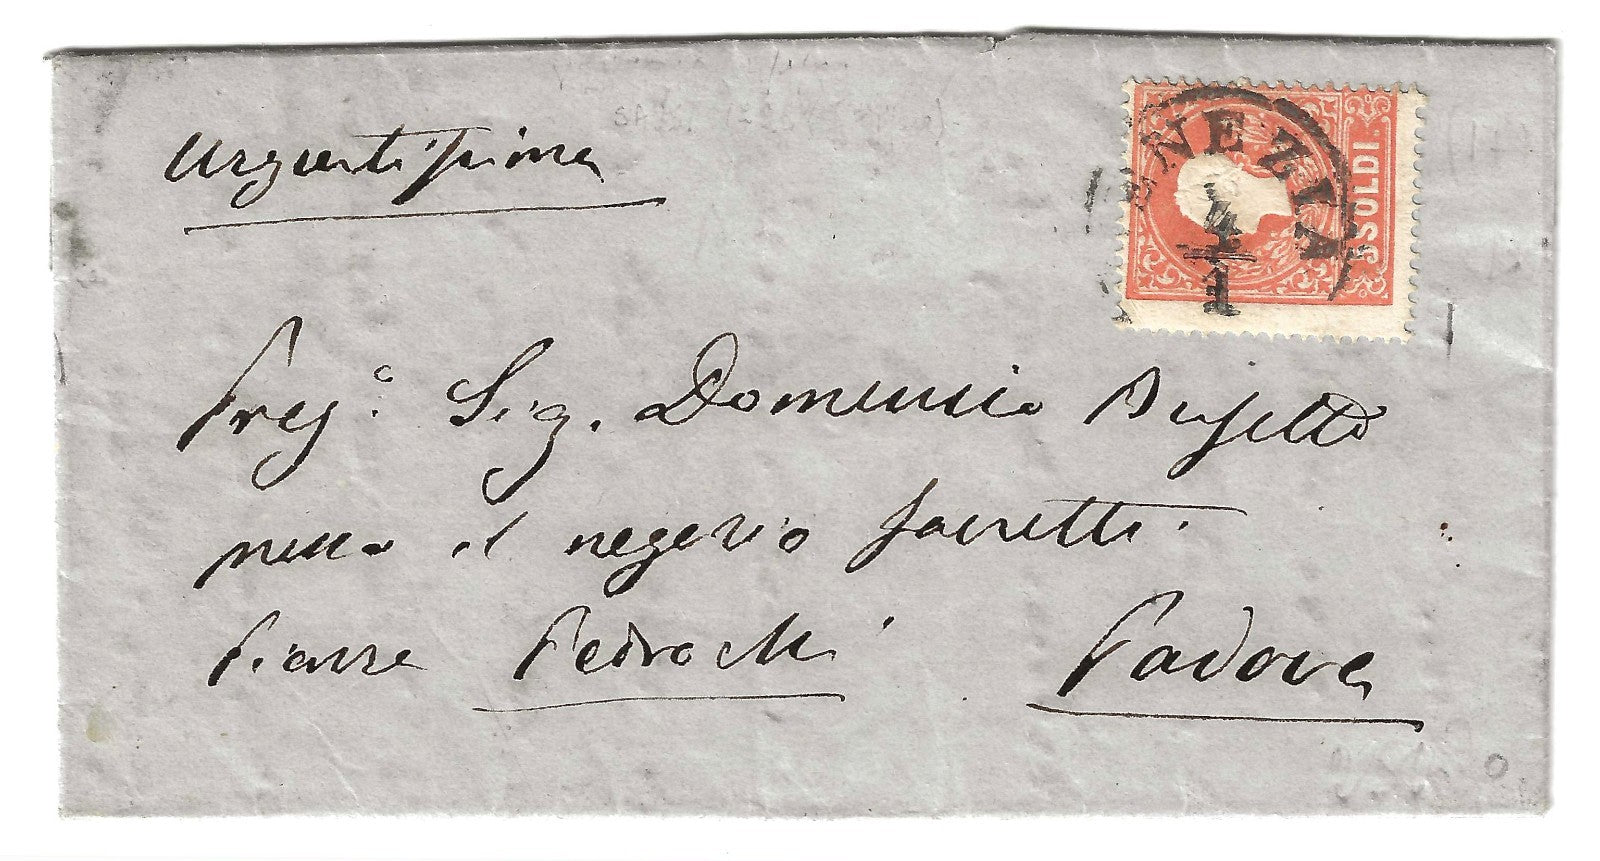 Urgentissima
VENEZIA
4
1
5 SOLDI
Preg.º Sig. Domenico Busetto
presso il negozio
Piazza Pedrocchi Padova